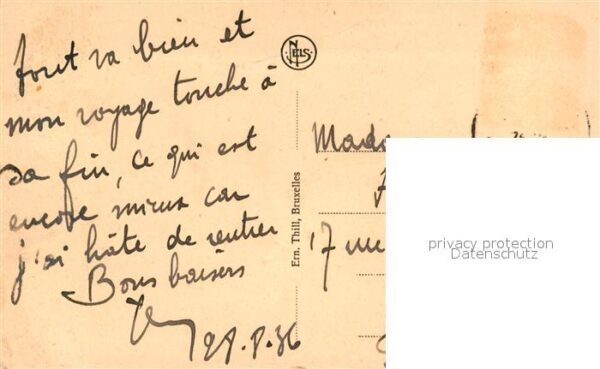 Tout va bien et
mon voyage touche à
sa fin, ce qui est
encore mieux car
j'ai hâte de rentrer
Bons baisers
28.8.36
NELS
Ern. Thill, Bruxelles
Mada
17 rue
privacy protection
Datenschutz